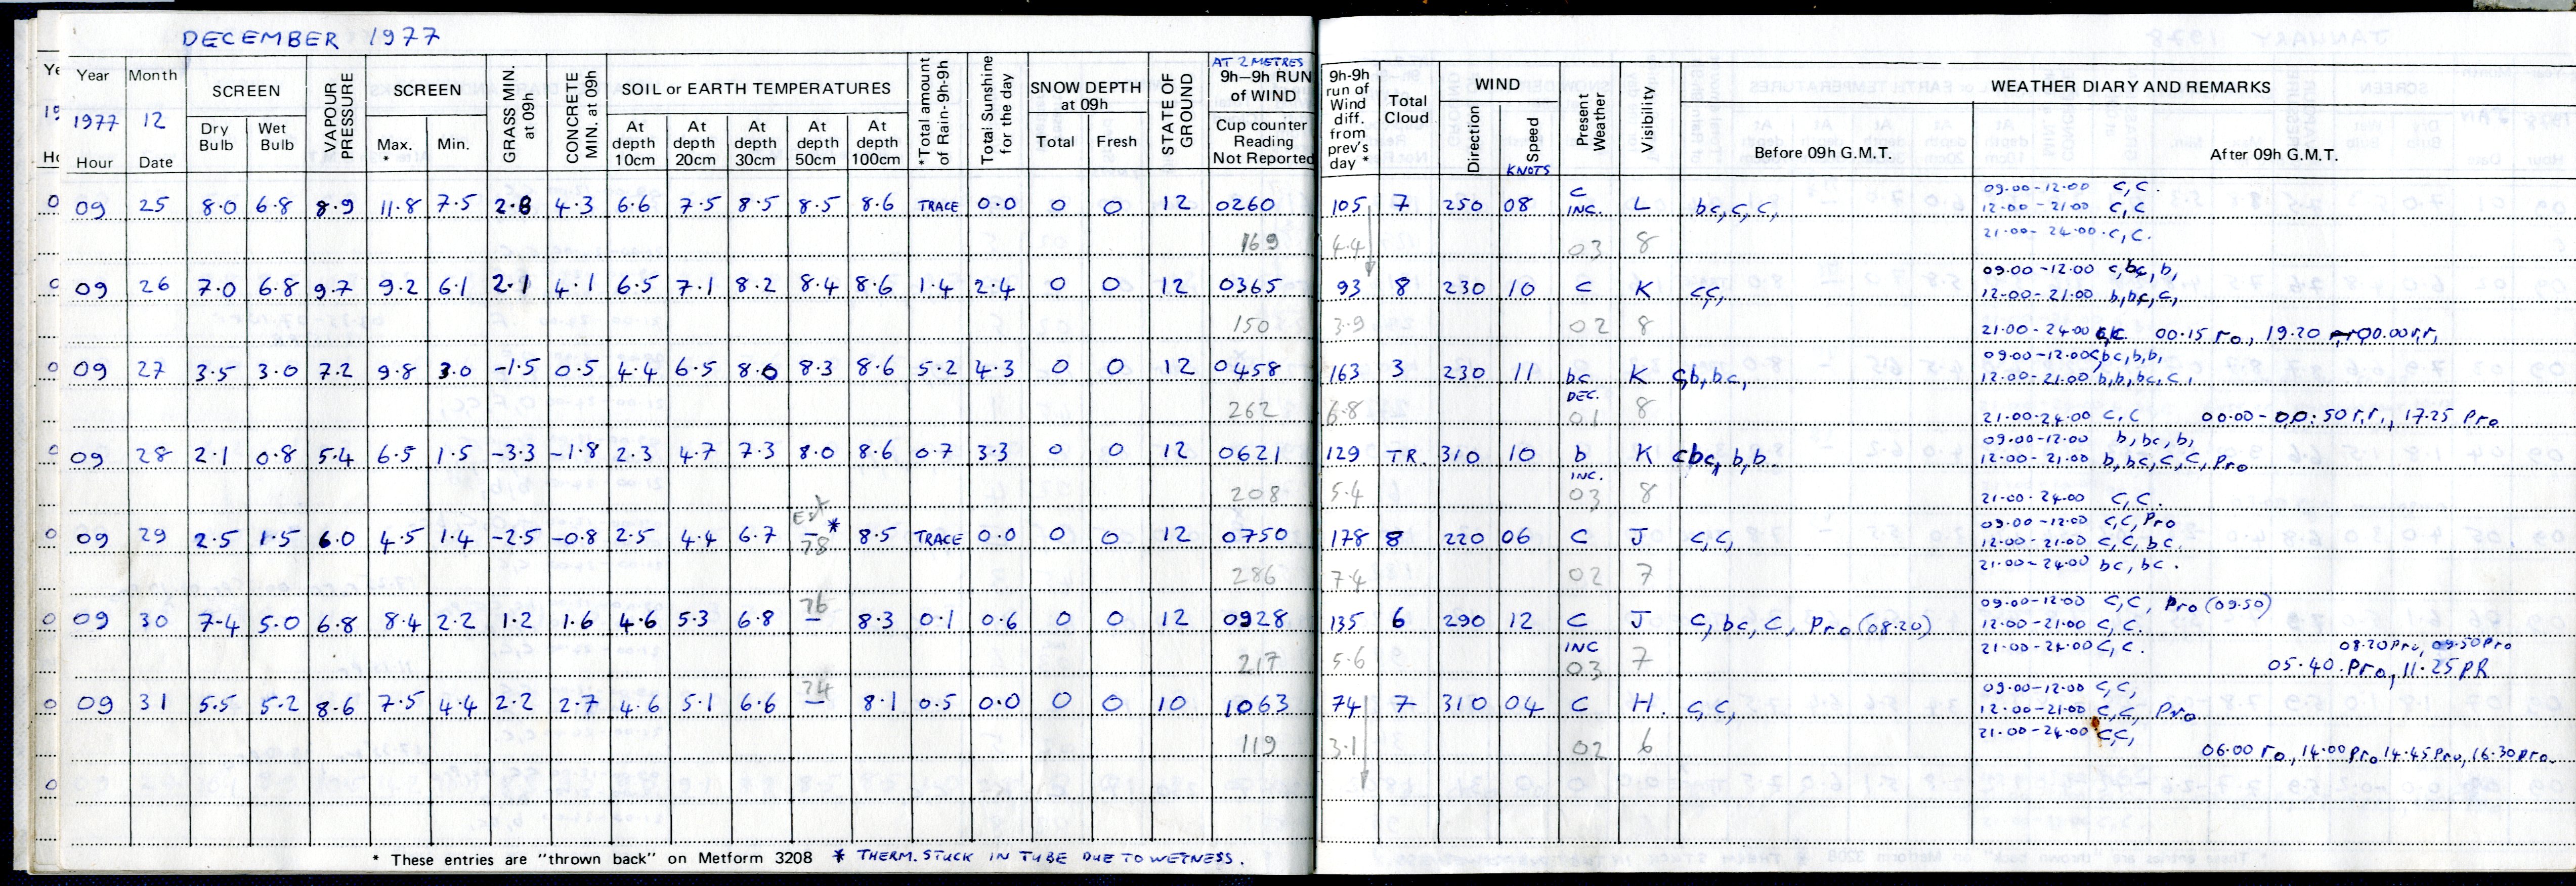 DECEMBER 1977
Year Month SCREEN VAPOUR PRESSURE SCREEN GRASS MIN. at 09h CONCRETE MIN. at 09h SOIL or EARTH TEMPERATURES *Total amount of Rain-9h-9h Total Sunshine for the day SNOW DEPTH at 09h STATE OF GROUND AT 2 METRES 9h-9h RUN of WIND 9h-9h run of Wind diff. from prev's day * Total Cloud WIND Present Weather Visibility WEATHER DIARY AND REMARKS
1977 12 Dry Bulb Wet Bulb Max. * Min. At depth 10cm At depth 20cm At depth 30cm At depth 50cm At depth 100cm Total Fresh Cup counter Reading Not Reported Direction Speed KNOTS Before 09h G.M.T. After 09h G.M.T.
Hour Date
09 25 8.0 6.8 8.9 11.8 7.5 2.8 4.3 6.6 7.5 8.5 8.5 8.6 TRACE 0.0 0 0 12 0260 105 7 250 08 C INC. L bc, c, c, 09.00-12.00 C, C.
12.00-21.00 C, C
169 4.4 03 8 21.00-24.00. C, C.
09 26 7.0 6.8 9.7 9.2 6.1 2.1 4.1 6.5 7.1 8.2 8.4 8.6 1.4 2.4 0 0 12 0365 93 8 230 10 C K c,c, 09.00-12.00 c, bc, b,
12.00-21.00 b, bc, c,
150 3.9 02 8 21.00-24.00 c,c. 00.15 ro., 19.20 00.00 r,r,
09 27 3.5 3.0 7.2 9.8 3.0 -1.5 0.5 4.4 6.5 8.0 8.3 8.6 5.2 4.3 0 0 12 0458 163 3 230 11 bc DEC. K c,b, bc, 09.00-12.00 c, bc, b, b,
12.00-21.00 b, b, bc, c,
262 6.8 01 8 21.00-24.00 C, C 00.00-00:50 r.r., 17.25 Pro
09 28 2.1 0.8 5.4 6.5 1.5 -3.3 -1.8 2.3 4.7 7.3 8.0 8.6 0.7 3.3 0 0 12 0621 129 TR. 310 10 b INC. K c bc, b, b. 09.00-12.00 b, bc, b,
12.00-21.00 b, bc, c, c, Pro
208 5.4 03 8 21.00-24.00 C, C.
09 29 2.5 1.5 6.0 4.5 1.4 -2.5 -0.8 2.5 4.4 6.7 Est — * 78 8.5 TRACE 0.0 0 0 12 0750 178 8 220 06 C J C, C, 09.00-12.00 C, C, Pro
12.00-21.00 C, C, bc.
286 7.4 02 7 21.00-24.00 bc, bc.
09 30 7.4 5.0 6.8 8.4 2.2 1.2 1.6 4.6 5.3 6.8 76 — 8.3 0.1 0.6 0 0 12 0928 135 6 290 12 C INC J C, bc, C, Pro (08.20) 09.00-12.00 C, C, Pro (09.50)
12.00-21.00 C, C.
21.00-24.00 C, C. 08.20 Pro, 09.50 Pro
217 5.6 03 7 05.40. Pro, 11.25 PR
09 31 5.5 5.2 8.6 7.5 4.4 2.2 2.7 4.6 5.1 6.6 74 — 8.1 0.5 0.0 0 0 10 1063 74 7 310 04 C H. C, C, 09.00-12.00 C, C,
12.00-21.00 C, C, Pro
21.00-24.00 C, C,
119 3.1 02 6 06.00 ro, 14.00 Pro 14.45 Pro, 16.30 pro.
* These entries are "thrown back" on Metform 3208 * THERM. STUCK IN TUBE DUE TO WETNESS.